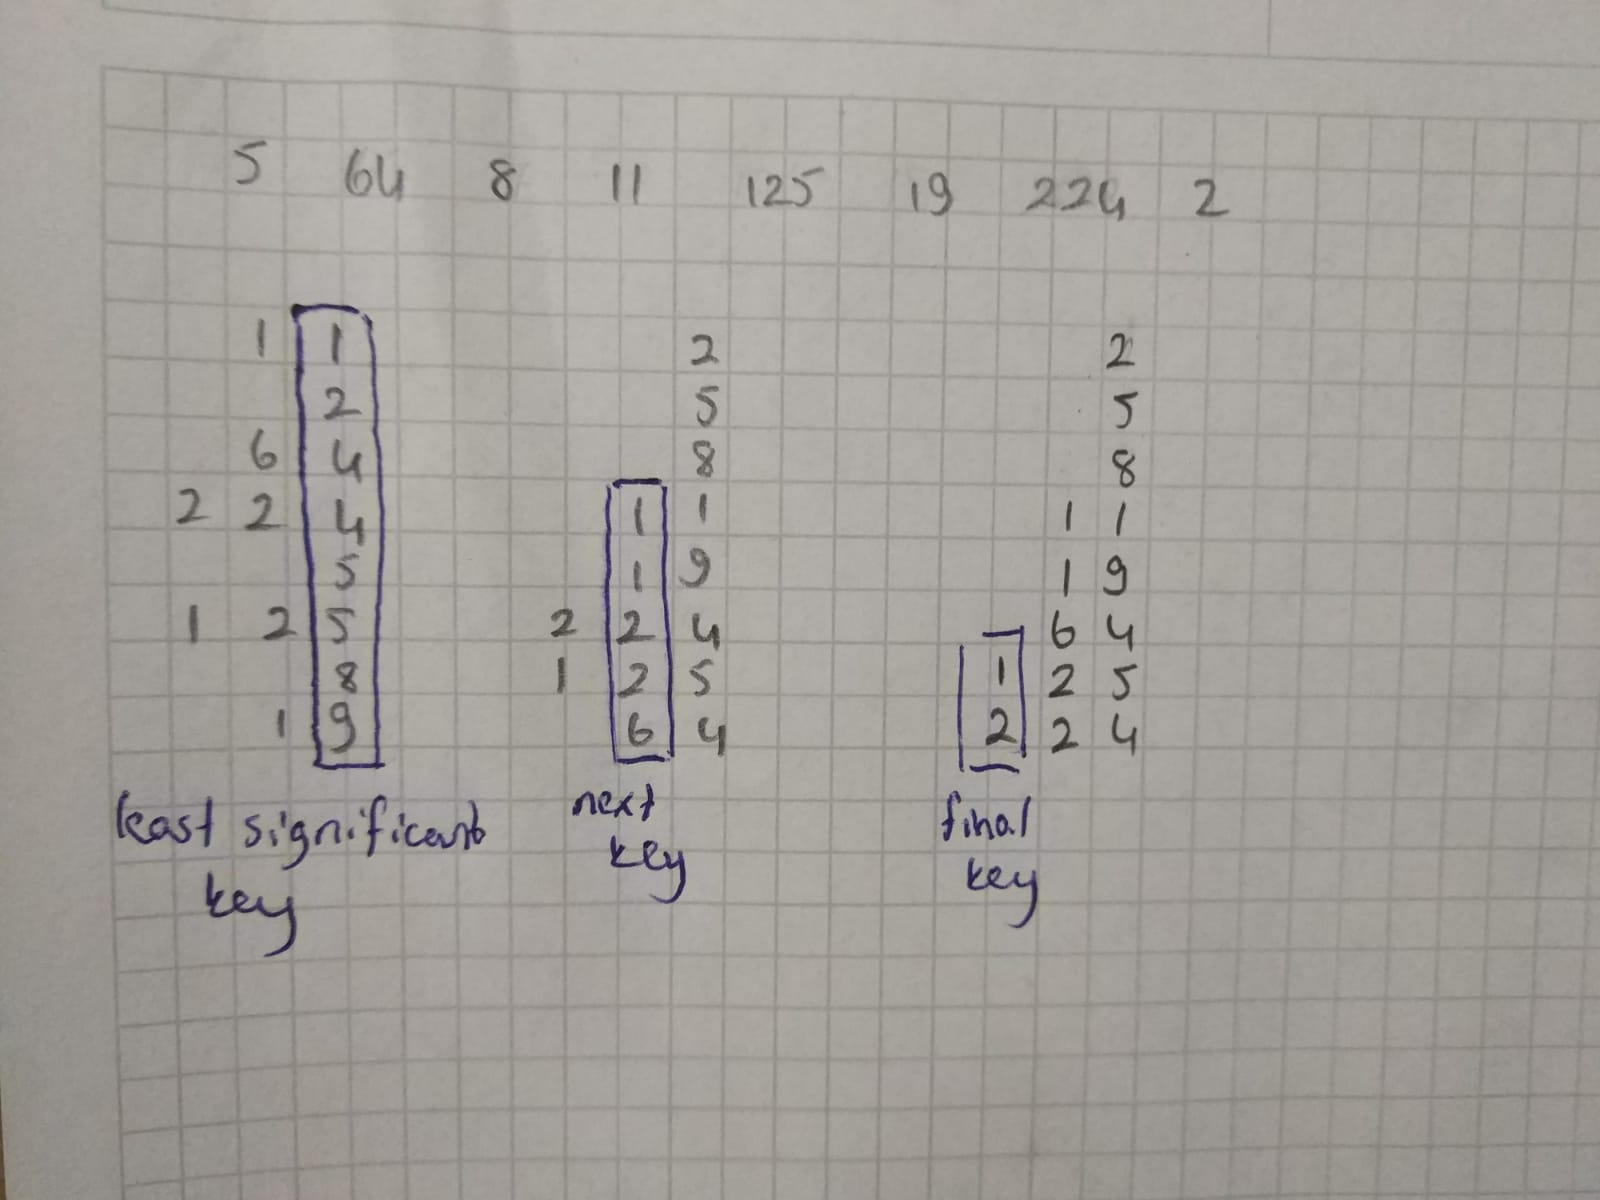 5 64 8 11 125 19 224 2
1 1
2
6 4
2 2 4
5
1 2 5
8
1 9
least significant
key
2
5
8
1 1
1 9
2 2 4
1 2 5
6 4
next
key
2
5
8
1 1
1 9
6 4
1 2 5
2 2 4
final
key